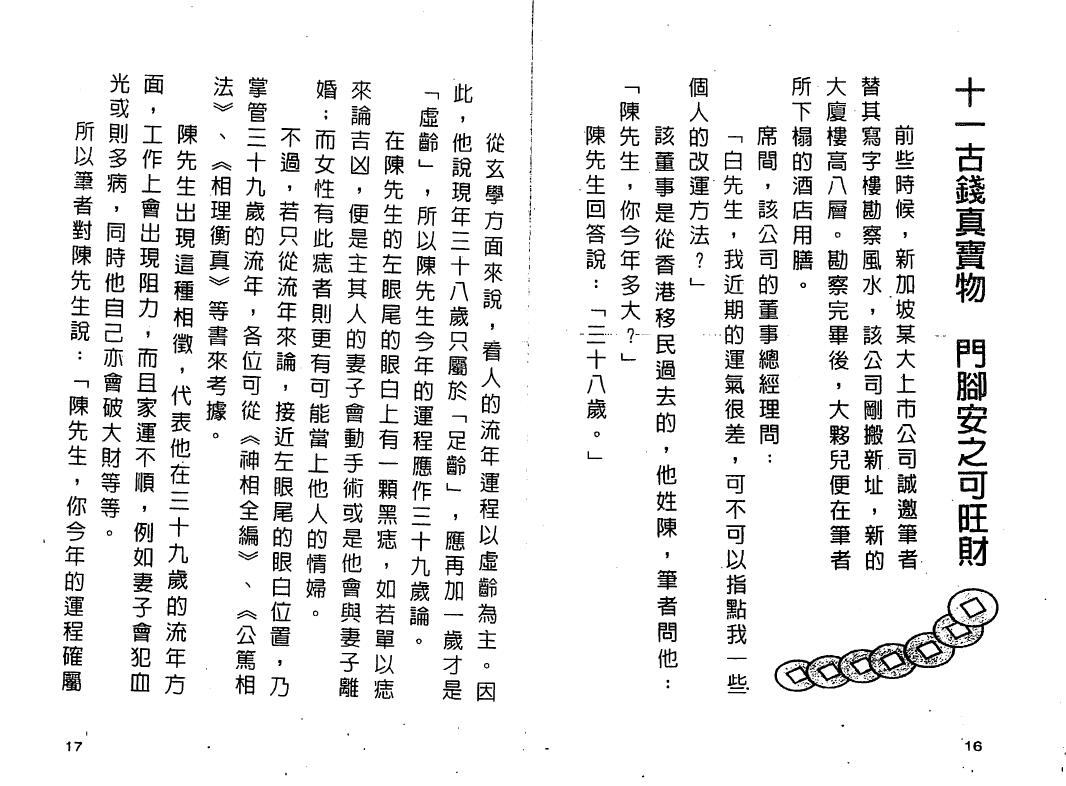 十一古錢真寶物　門腳安之可旺財
前些時候，新加坡某大上市公司誠邀筆者
替其寫字樓勘察風水，該公司剛搬新址，新的
大廈樓高八層。勘察完畢後，大夥兒便在筆者
所下榻的酒店用膳。
席間，該公司的董事總經理問：
「白先生，我近期的運氣很差，可不可以指點我一些
個人的改運方法？」
該董事是從香港移民過去的，他姓陳，筆者問他：
「陳先生，你今年多大？」
陳先生回答說：「三十八歲。」
16
從玄學方面來說，看人的流年運程以虛齡為主。因
此，他說現年三十八歲只屬於「足齡」，應再加一歲才是
「虛齡」，所以陳先生今年的運程應作三十九歲論。
在陳先生的左眼尾的眼白上有一顆黑痣，如若單以痣
來論吉凶，便是主其人的妻子會動手術或是他會與妻子離
婚；而女性有此痣者則更有可能當上他人的情婦。
不過，若只從流年來論，接近左眼尾的眼白位置，乃
掌管三十九歲的流年，各位可從《神相全編》、《公篤相
法》、《相理衡真》等書來考據。
陳先生出現這種相徵，代表他在三十九歲的流年方
面，工作上會出現阻力，而且家運不順，例如妻子會犯血
光或則多病，同時他自己亦會破大財等等。
所以筆者對陳先生說：「陳先生，你今年的運程確屬
17